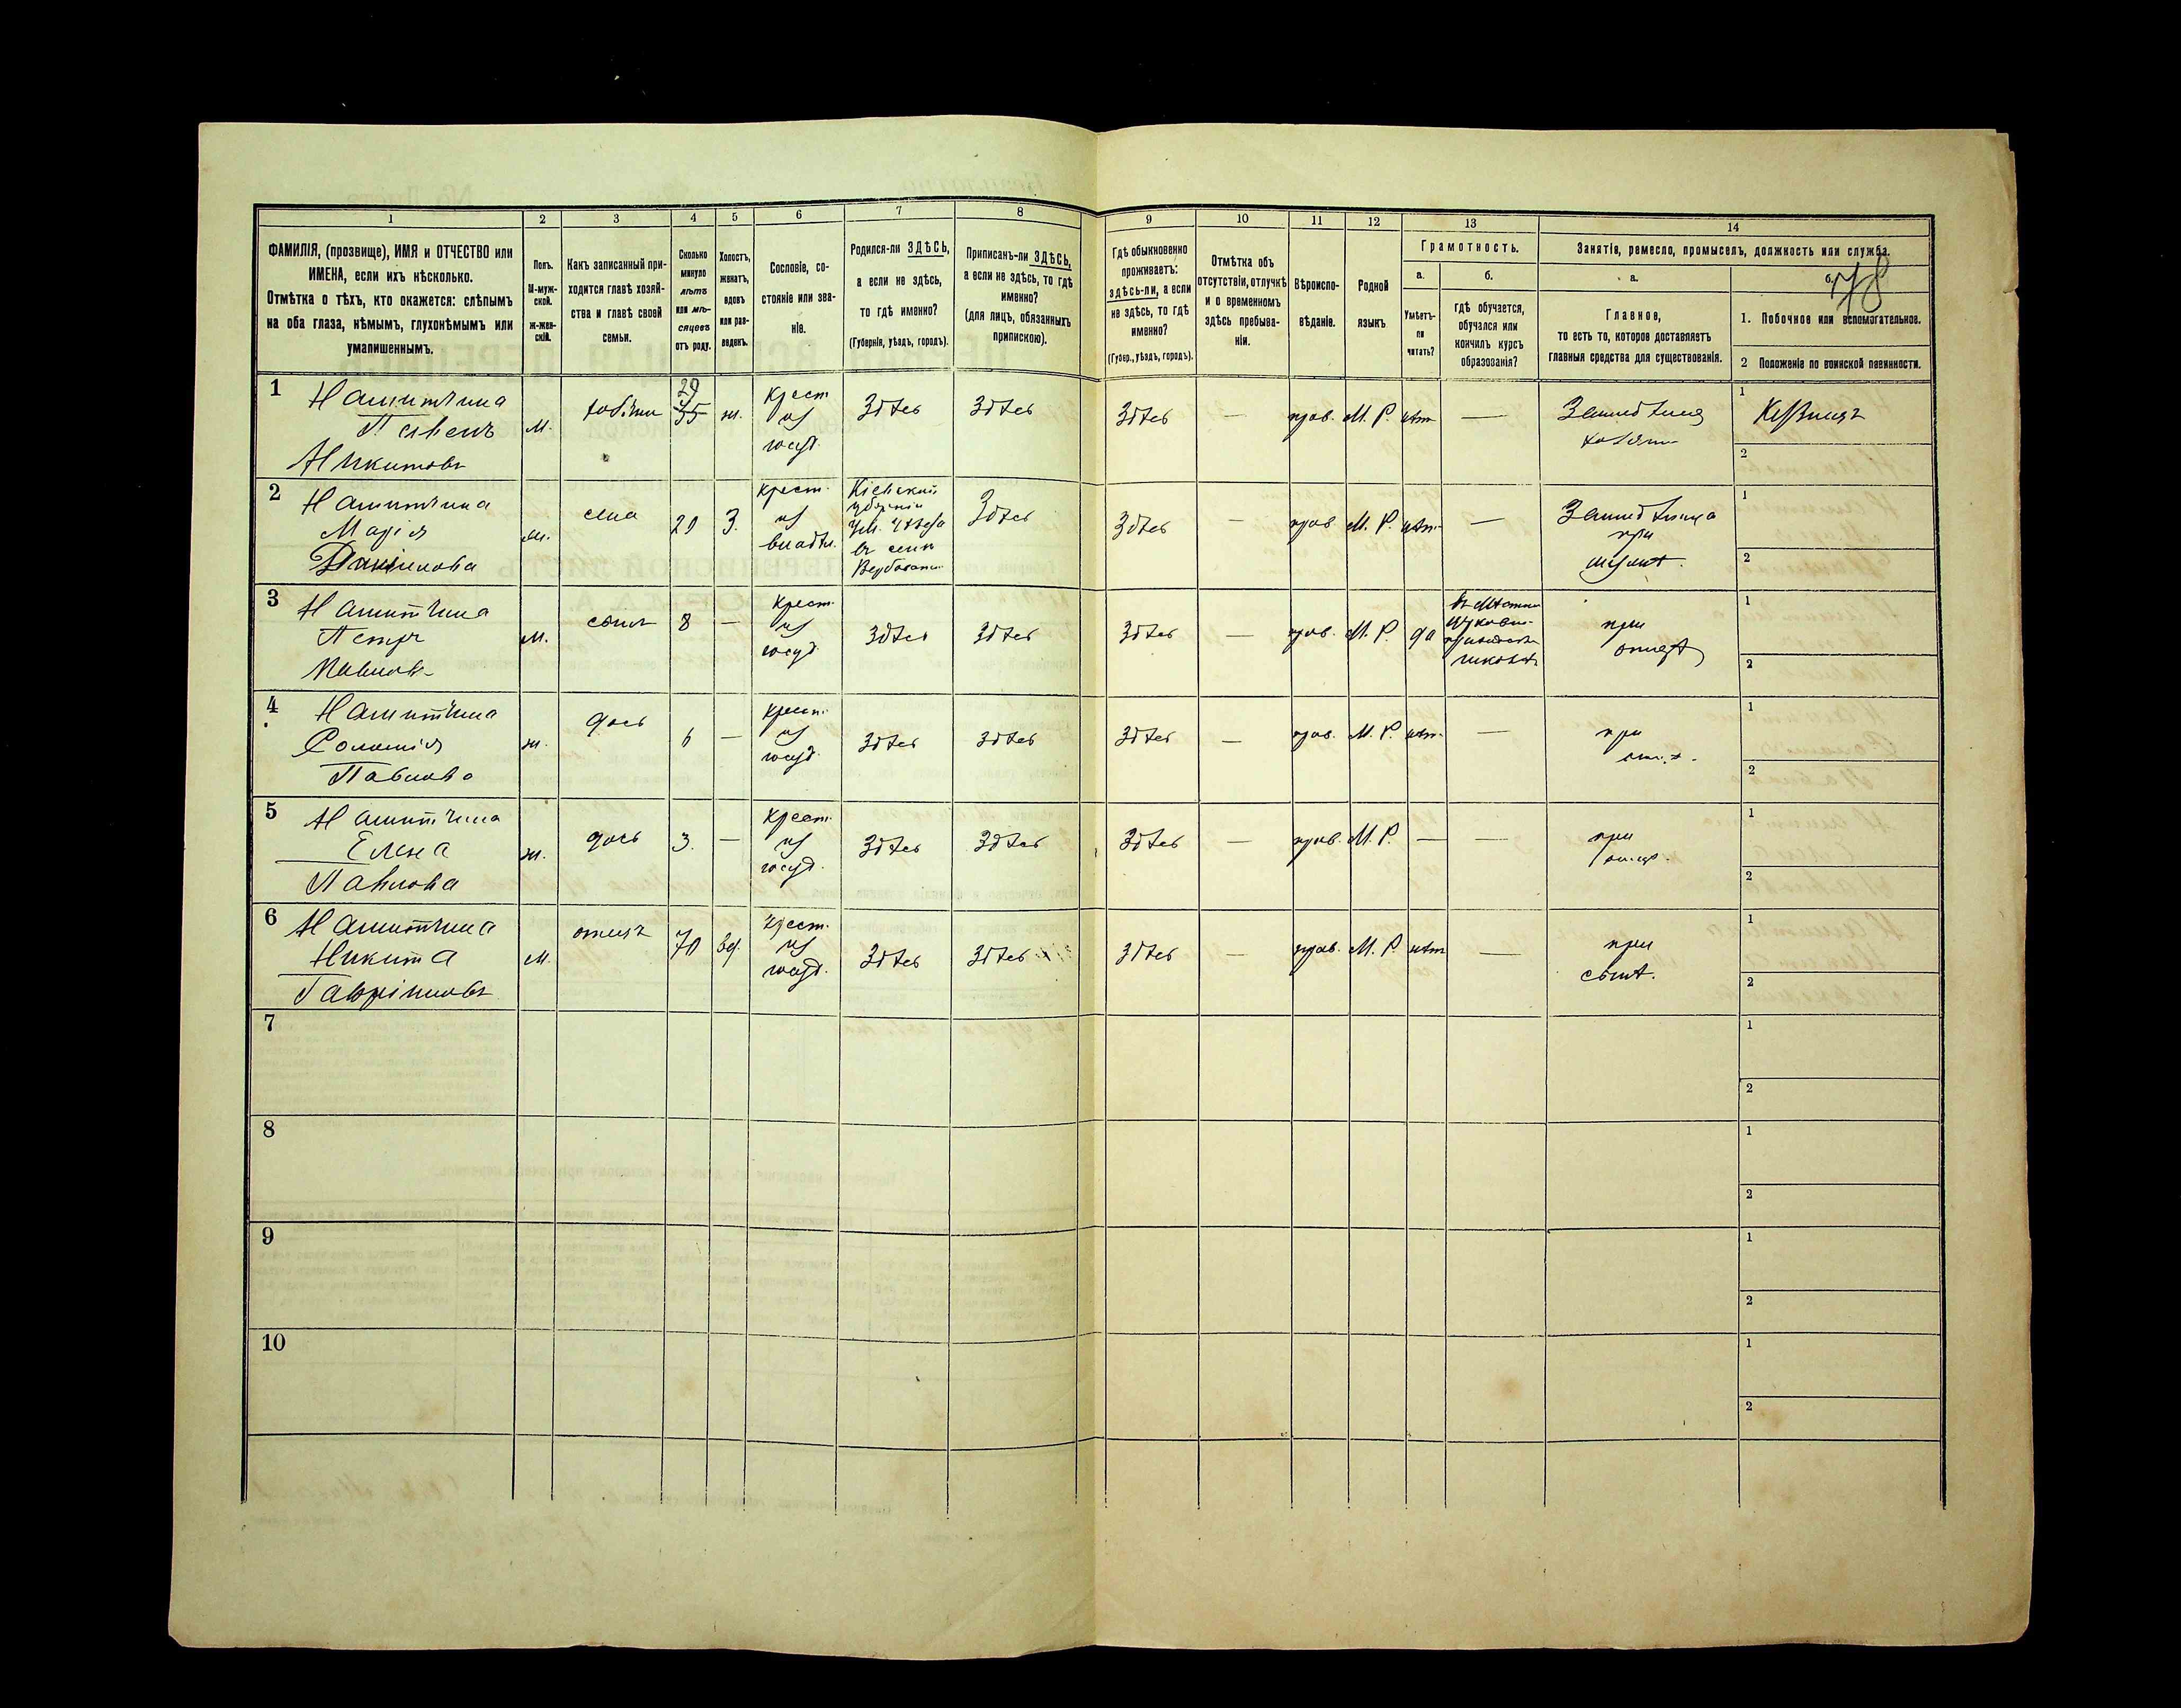 1 2 3 4 5 6 7 8 9 10 11 12 13 14
ФАМИЛІЯ, (прозвище), ИМЯ и ОТЧЕСТВО или
ИМЕНА, если ихъ нѣсколько.
Отмѣтка о тѣхъ, кто окажется: слѣпымъ
на оба глаза, нѣмымъ, глухонѣмымъ или
умалишеннымъ.
Полъ.
М-муж-
ской.
ж-жен-
скій.
Какъ записанный при-
ходится главѣ хозяй-
ства и главѣ своей
семьи.
Сколько
минуло
лѣтъ
или мѣ-
сяцевъ
отъ роду.
Холостъ,
женатъ,
вдовъ
или раз-
веденъ.
Сословіе, со-
стояніе или зва-
ніе.
Родился-ли ЗДѢСЬ,
а если не здѣсь,
то гдѣ именно?
(Губернія, уѣздъ, городъ).
Приписанъ-ли ЗДѢСЬ,
а если не здѣсь, то гдѣ
именно?
(для лицъ, обязанныхъ
припискою).
Гдѣ обыкновенно
проживаетъ:
здѣсь-ли, а если
не здѣсь, то гдѣ
именно?
(Губер., уѣздъ, городъ).
Отмѣтка объ
отсутствіи, отлучкѣ
и о временномъ
здѣсь пребыва-
ніи.
Вѣроиспо-
вѣданіе.
Родной
языкъ
Грамотность.
а.
Умѣетъ-
ли
читать?
б.
гдѣ обучается,
обучался или
кончилъ курсъ
образованія?
Занятіе, ремесло, промыселъ, должность или служба.
а.
Главное,
то есть то, которое доставляетъ
главныя средства для существованія.
б.
78
1. Побочное или вспомогательное.
2 Положеніе по воинской повинности.
1
Павелъ
Никитовъ
м.
29
35
ж.
крест
из
госуд.
Здѣсь
Здѣсь
Здѣсь
—
прав.
М. Р.
нѣт
—
1
2
2
Марія
Даніилова
жена
29
З.
крест.
из
владѣл.
Кіевской
губерніи
Ум. уѣзда
въ селѣ
Здѣсь
Здѣсь
—
прав
М. Р.
нѣт.
—
при
мужѣ.
1
2
3
Петръ
Павловъ
м.
сынъ
8
—
крест.
из
госуд
Здѣсь
Здѣсь
Здѣсь
—
прав.
М. Р.
да
въ мѣстной
церковно-
приходской
школѣ
при
отцѣ
1
2
4
Соломія
Павлова
ж.
дочь
6
—
крест.
из
госуд.
Здѣсь
Здѣсь
Здѣсь
—
прав.
М. Р.
нѣт.
—
при
отцѣ.
1
2
5
Елена
Павлова
ж.
дочь
3.
—
крест.
из
госуд.
Здѣсь
Здѣсь
Здѣсь
—
прав.
М. Р.
—
—
при
отцѣ.
1
2
6
Никита
Гавріиловъ
м.
отецъ
70
вд.
крест.
из
госуд.
Здѣсь
Здѣсь
Здѣсь
—
прав.
М. Р.
нѣт
—
при
сынѣ.
1
2
7
1
2
8
1
2
9
1
2
10
1
2